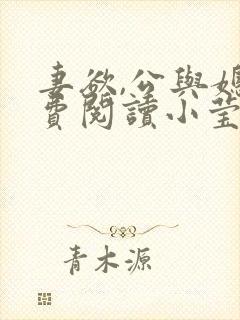 妻欲,公與媳
費閱讀小莹
青木源